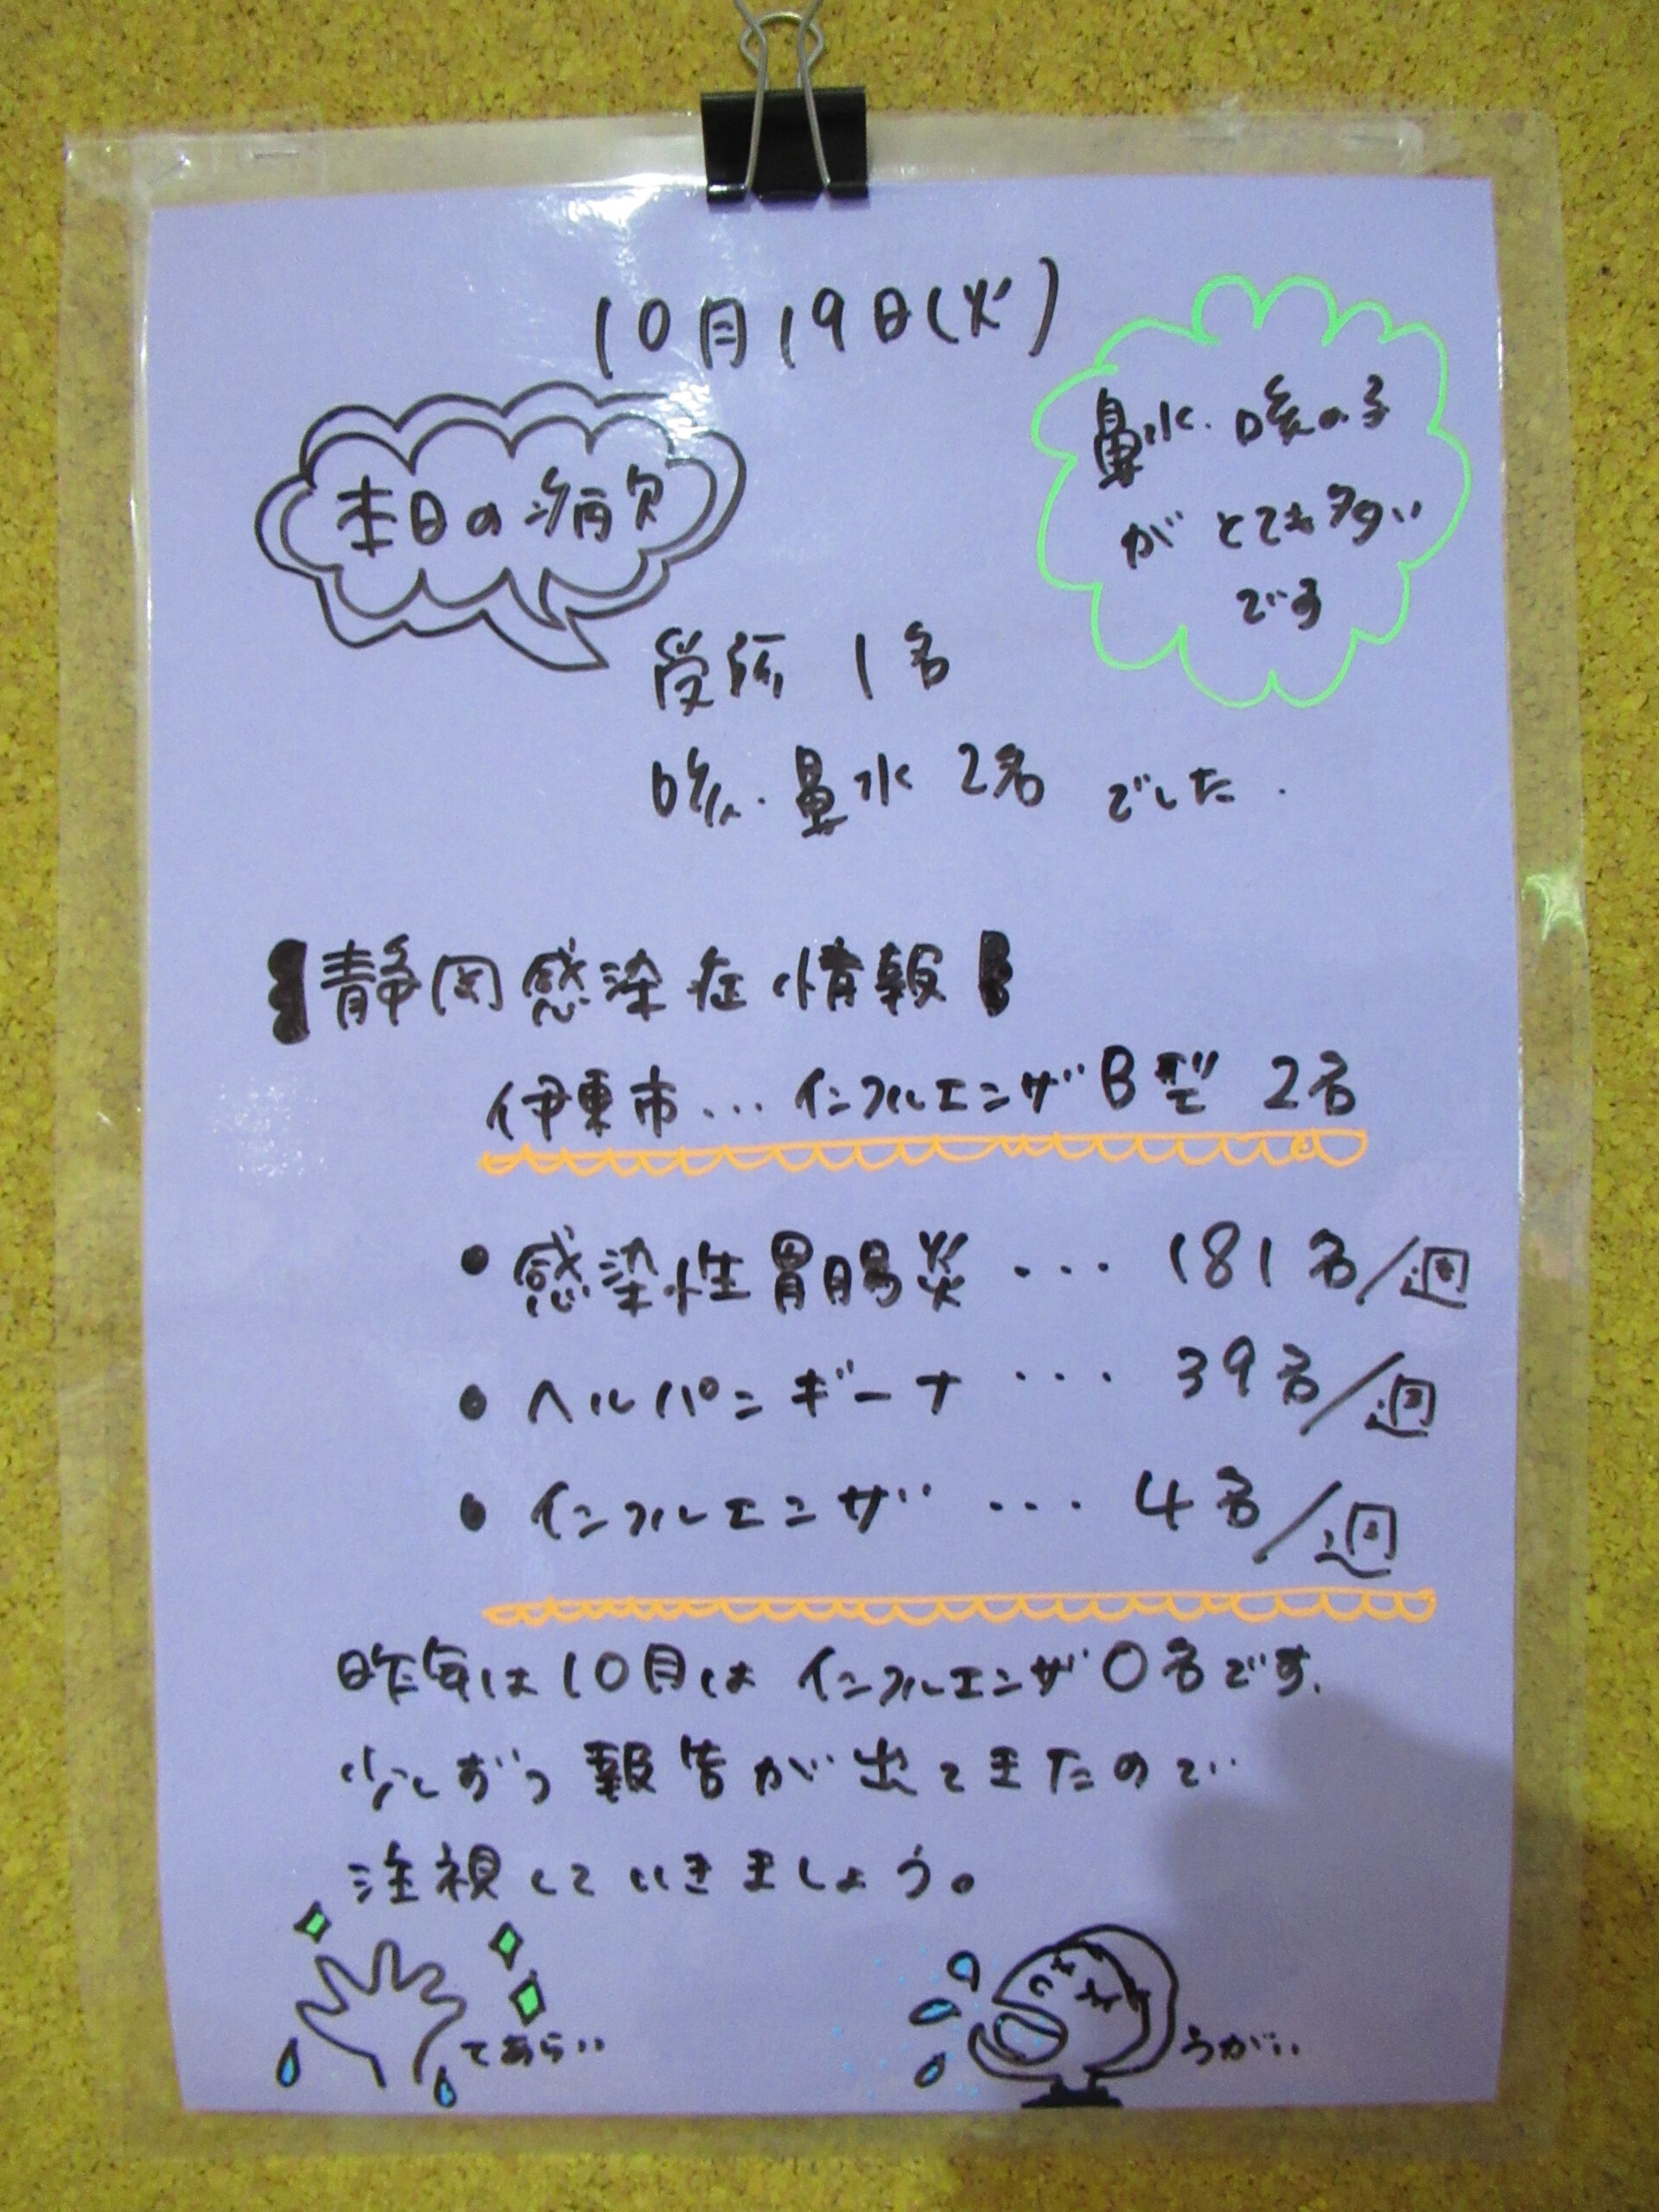 10月19日(火)
本日の病欠
鼻水、咳の子
がとても多い
です
受診 1名
咳・鼻水 2名 でした.
【静岡感染症情報】
伊東市... インフルエンザB型 2名
• 感染性胃腸炎 ... 181名/週
• ヘルパンギーナ ... 39名/週
• インフルエンザ ... 4名/週
昨年は10月はインフルエンザ0名です.
少しずつ報告が出てきたので
注視していきましょう。
てあらい
うがい